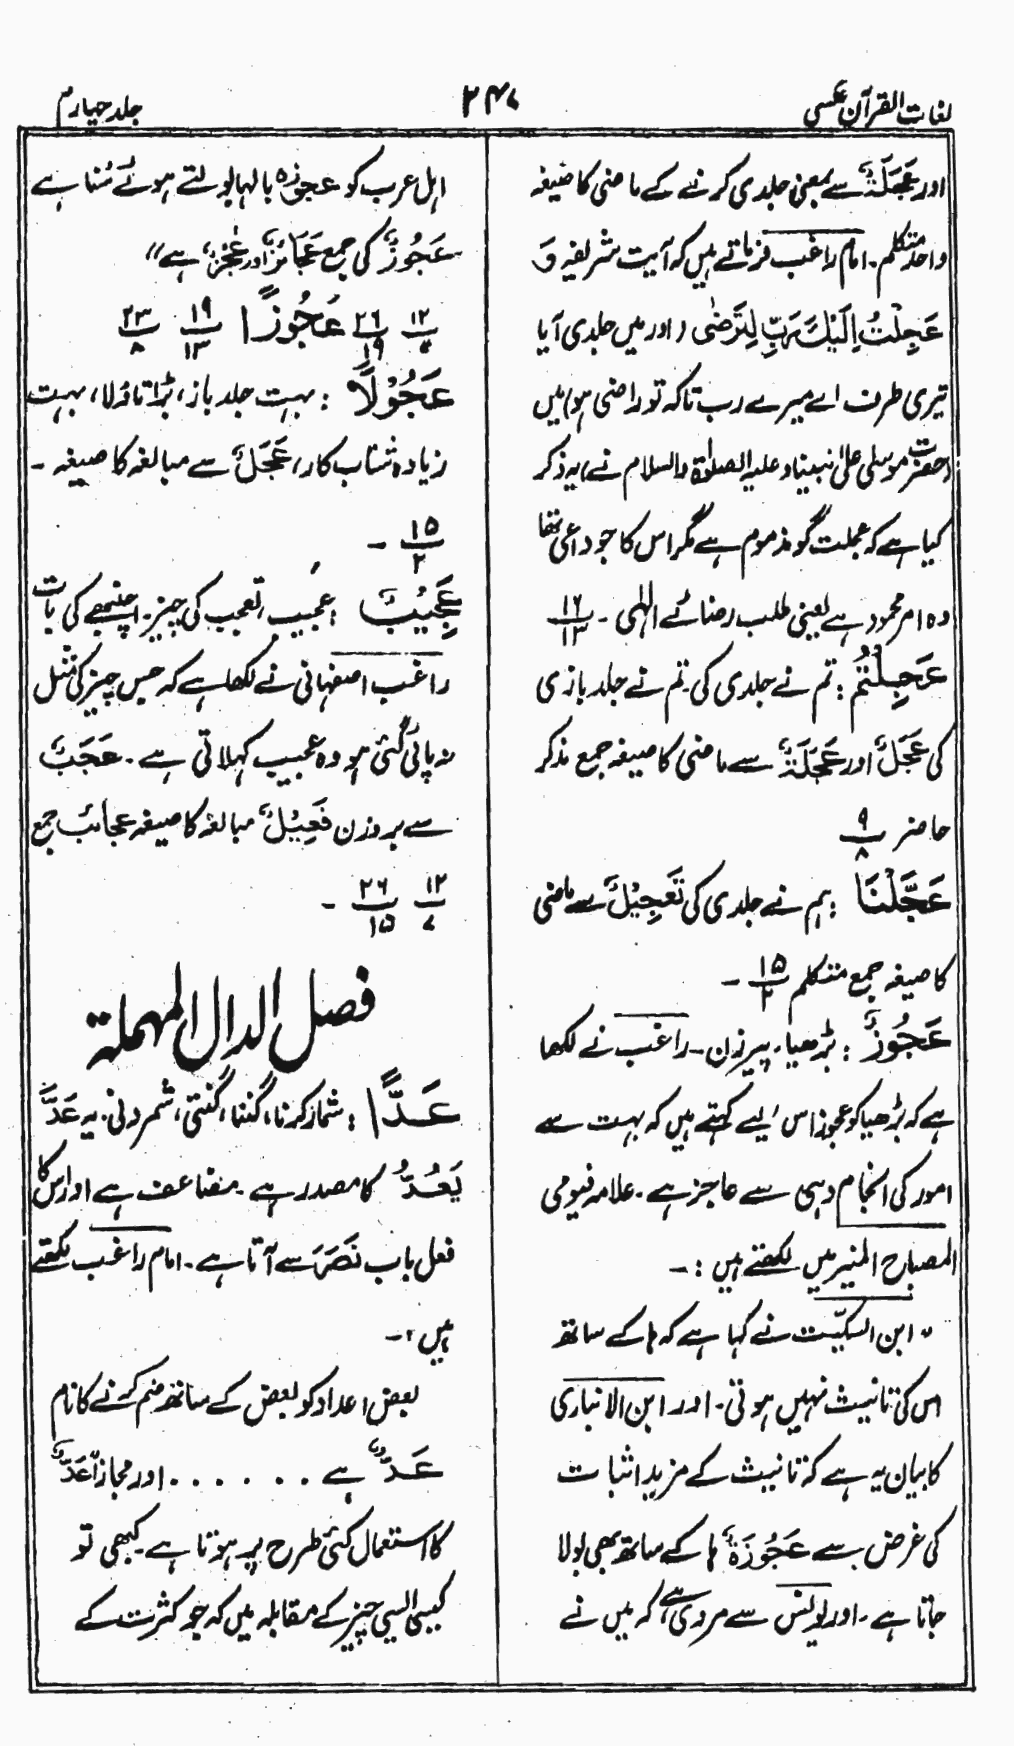 لغات القرآن عکسی
۲۴۷
جلد چہارم
اور عَجَلَۃٌ سے بمعنی جلدی کرنے کے ماضی کا صیغہ
واحد متکلم۔ امام راغب فرماتے ہیں کہ آیت شریفہ وَ
عَجِلْتُ اِلَیْكَ رَبِّ لِتَرْضٰی (اور میں جلدی آیا
تیری طرف اے میرے رب تاکہ تو راضی ہو) میں
(حضرت موسٰی علیٰ نبینا و علیہ الصلوٰۃ والسلام نے) یہ ذکر
کیا ہے کہ عجلت گو مذموم ہے مگر اس کا جو داعی تھا
وہ امر محمود ہے یعنی طلب رضائے الٰہی ۔ ۱۶/۱۳
عَجِلْتُمْ : تم نے جلدی کی۔ تم نے جلد بازی
کی عَجَلٌ اور عَجَلَۃٌ سے ماضی کا صیغہ جمع مذکر
حاضر ۹/۸
عَجَّلْنَا : ہم نے جلدی کی تَعْجِیْلٌ سے ماضی
کا صیغہ جمع متکلم ۱۵/۲ ۔
عَجُوْزٌ : بڑھیا۔ پیرزن۔ راغب نے لکھا
ہے کہ بڑھیا کو عجوز اس لیے کہتے ہیں کہ بہت سے
امور کی انجام دہی سے عاجز ہے۔ علامہ فیومی
المصباح المنیر میں لکھتے ہیں :۔
" ابن السکیّت نے کہا ہے کہ ہا کے ساتھ
اس کی تانیث نہیں ہوتی۔ اور ابن الانباری
کا بیان یہ ہے کہ تانیث کے مزید اثبات
کی غرض سے عَجُوْزَۃٌ ہا کے ساتھ بھی بولا
جاتا ہے۔ اور یونس سے مروی ہے کہ میں نے
اہل عرب کو عجوزہ بالہا بولتے ہوئے سُنا ہے
عَجُوْزٌ کی جمع عَجَائِزُ اور عُجُزٌ ہے"
۱۲/۷ ۲۶/۱۹ عَجُوْزًا ۱۹/۱۳ ۲۳/۸
عَجُوْلًا : بہت جلد باز، بڑا تاؤلا، بہت
زیادہ شتاب کار، عَجَلٌ سے مبالغہ کا صیغہ ۔
۱۵/۲ ۔
عَجِیْبٌ : عجیب، تعجب کی چیز۔ اچنبھے کی بات
راغب اصفہانی نے لکھا ہے کہ جس چیز کی مثل
نہ پائی گئی ہو وہ عجیب کہلاتی ہے۔ عَجَبٌ
سے بروزن فَعِیْلٌ مبالغہ کا صیغہ عجائب جمع
۱۲/۷ ۲۶/۱۵ ۔
فصل الدال المہملۃ
عَدًّا : شمار کرنا، گننا، گنتی، شمردنی۔ یہ عَدَّ
یَعُدُّ کا مصدر ہے۔ مضاعف ہے اور اس کا
فعل باب نَصَرَ سے آتا ہے۔ امام راغب لکھتے
ہیں :۔
بعض اعداد کو بعض کے ساتھ ضم کرنے کا نام
عَدٌّ ہے ۔ ۔ ۔ ۔ ۔ ۔ اور مجازاً عَدٌّ
کا استعمال کئی طرح پر ہوتا ہے۔ کبھی تو
کسی ایسی چیز کے مقابلہ میں کہ جو کثرت کے